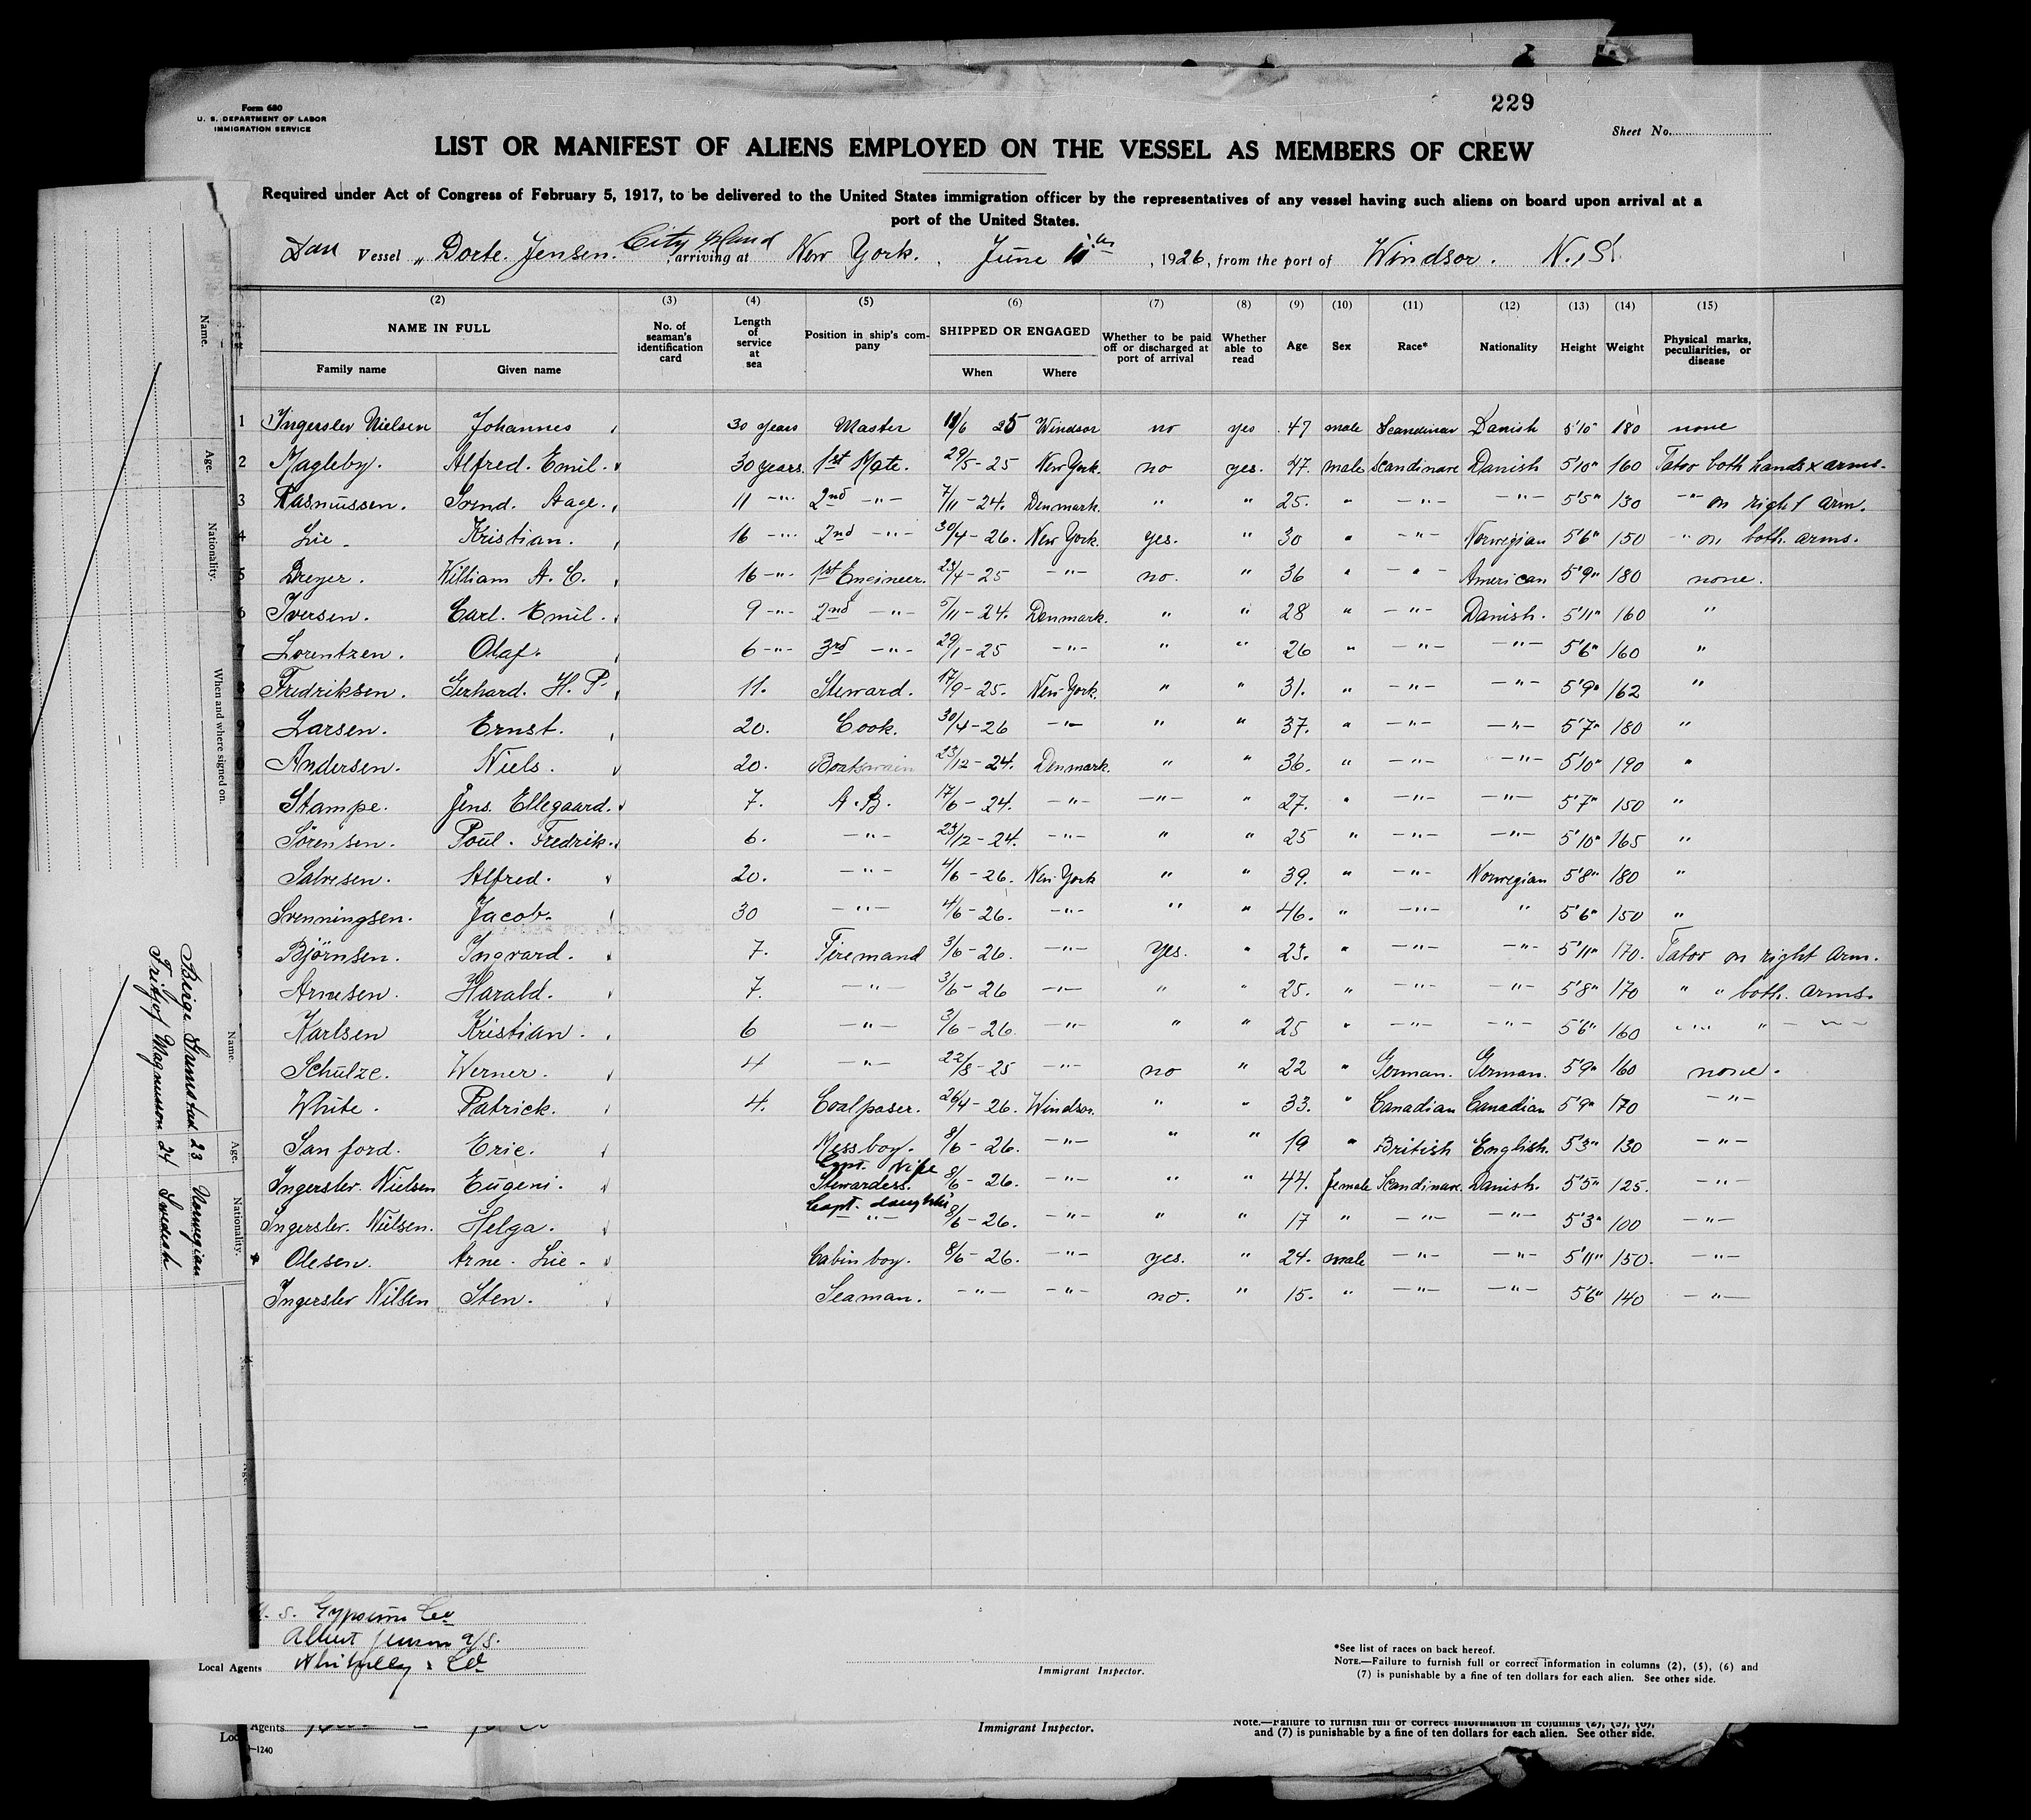 229
Form 680
U. S. DEPARTMENT OF LABOR
IMMIGRATION SERVICE
Sheet No.
LIST OR MANIFEST OF ALIENS EMPLOYED ON THE VESSEL AS MEMBERS OF CREW
Required under Act of Congress of February 5, 1917, to be delivered to the United States immigration officer by the representatives of any vessel having such aliens on board upon arrival at a
port of the United States.
Dan Vessel „ Dorte Jensen. City Island, arriving at New York. June 11th, 1926, from the port of Windsor. N. S.
(2) (3) (4) (5) (6) (7) (8) (9) (10) (11) (12) (13) (14) (15)
NAME IN FULL Family name Given name No. of seaman's identification card Length of service at sea Position in ship's company SHIPPED OR ENGAGED When Where Whether to be paid off or discharged at port of arrival Whether able to read Age Sex Race* Nationality Height Weight Physical marks, peculiarities, or disease
1 Ingerslev Nielsen Johannes 30 years Master 18/6 25 Windsor no yes 47 male Scandinav Danish 5'10" 180 none
2 Magleby. Alfred. Emil. 30 years. 1st Mate. 29/5 - 25 New York. no yes. 47. male Scandinave Danish 5'10" 160 Tatoo both hands x arms.
3 Rasmussen. Svend. Aage. 11 -"- 2nd -"- 7/11 - 24. Denmark. " " 25. " -"- -"- 5'5" 130 -"- on right arm.
4 Lie. Kristian. 16 -"- 2nd -"- 30/4 - 26. New York. yes. " 30 " -"- Norwegian 5'6" 150 -" on both. arms.
5 Breyer. William A. C. 16 -"- 1st Engineer. 23/4 - 25 -"- no. " 36 " -"- American 5'9" 180 none.
6 Iversen. Carl. Emil. 9 -"- 2nd -"- 5/11 - 24. Denmark. " " 28 " -"- Danish. 5'11" 160 "
7 Lorentzen. Olaf. 6 -"- 3rd -"- 29/1 - 25 -"- " " 26 " -"- -"- 5'6" 160 "
8 Fredriksen. Gerhard. H. P. 11. Steward. 17/9 - 25. New York. " " 31. " -"- -"- 5'9" 162 "
9 Larsen. Ernst. 20. Cook. 30/4 - 26 -"- " " 37. " -"- -"- 5'7" 180 "
0 Andersen. Niels. 20. Boatswain 23/12 - 24. Denmark. " " 36. " -"- -"- 5'10" 190 "
1 Stampe. Jens. Ellegaard. 7. A. B. 17/6 - 24. -"- -"- " 27. " -"- -"- 5'7" 150 "
2 Sörensen. Poul. Fredrik. 6. -"- 23/12 - 24. -"- " " 25 " -"- -"- 5'10" 165 "
Salvesen. Alfred. 20. -"- 4/6 - 26. New York " " 39. " -"- Norwegian 5'8" 180 "
Svenningsen. Jacob. 30 -"- 4/6 - 26. -"- " " 46. " -"- " 5'6" 150 "
5 Björnsen. Ingvard. 7. Firemand 3/6 - 26. -"- Yes. " 23. " -"- -"- 5'11" 170. Tatoo on right arm.
Arnesen. Harald. 7. -"- 3/6 - 26 -"- " " 25. " -"- -"- 5'8" 170 " " both. arms.
Karlsen Kristian. 6 -"- 3/6 - 26. -"- " " 25 " -"- -"- 5'6" 160 -"- " -"-
Schulze. Werner. 4 -"- 22/8 - 25 -"- no " 22 " German. German. 5'9" 160 none.
White. Patrick. 4. Coalpaser. 26/4 - 26. Windsor. " " 33. " Canadian Canadian 5'9" 170 -"-
Sanford. Eric. Mess boy. 8/6 - 26. -"- " " 19 " British English. 5'3" 130 -"-
Capt. Wife
Ingerslev. Nielsen Eugeni. Stewardess. 8/6 - 26. -"- " " 44. female Scandinave. Danish. 5'5" 125. -"-
Capt. daughter
Ingerslev. Nielsen. Helga. -"- 8/6 - 26. -"- " " 17 " -"- -"- 5'3" 100 -"-
Olesen. Arne. Lie. Cabin boy. 8/6 - 26. -"- yes. " 24. male -"- -"- 5'11" 150. -"-
Ingerslev Nilsen Sten. Seaman. -"- -"- no. " 15. " -"- -"- 5'6" 140 -"-
U. S. Gypsum Co
Albert Jensen a/s.
Local Agents
Immigrant Inspector.
*See list of races on back hereof.
NOTE.—Failure to furnish full or correct information in columns (2), (5), (6) and
(7) is punishable by a fine of ten dollars for each alien. See other side.
Agents
Immigrant Inspector.
Note.—Failure to furnish full or correct information in columns (2), (5), (6),
and (7) is punishable by a fine of ten dollars for each alien. See other side.
—1240
Name. Age. Nationality. When and where signed on.
Name. Age. Nationality.
Birge 23 Norwegian
Fritjof Magnusson 24 Swedish